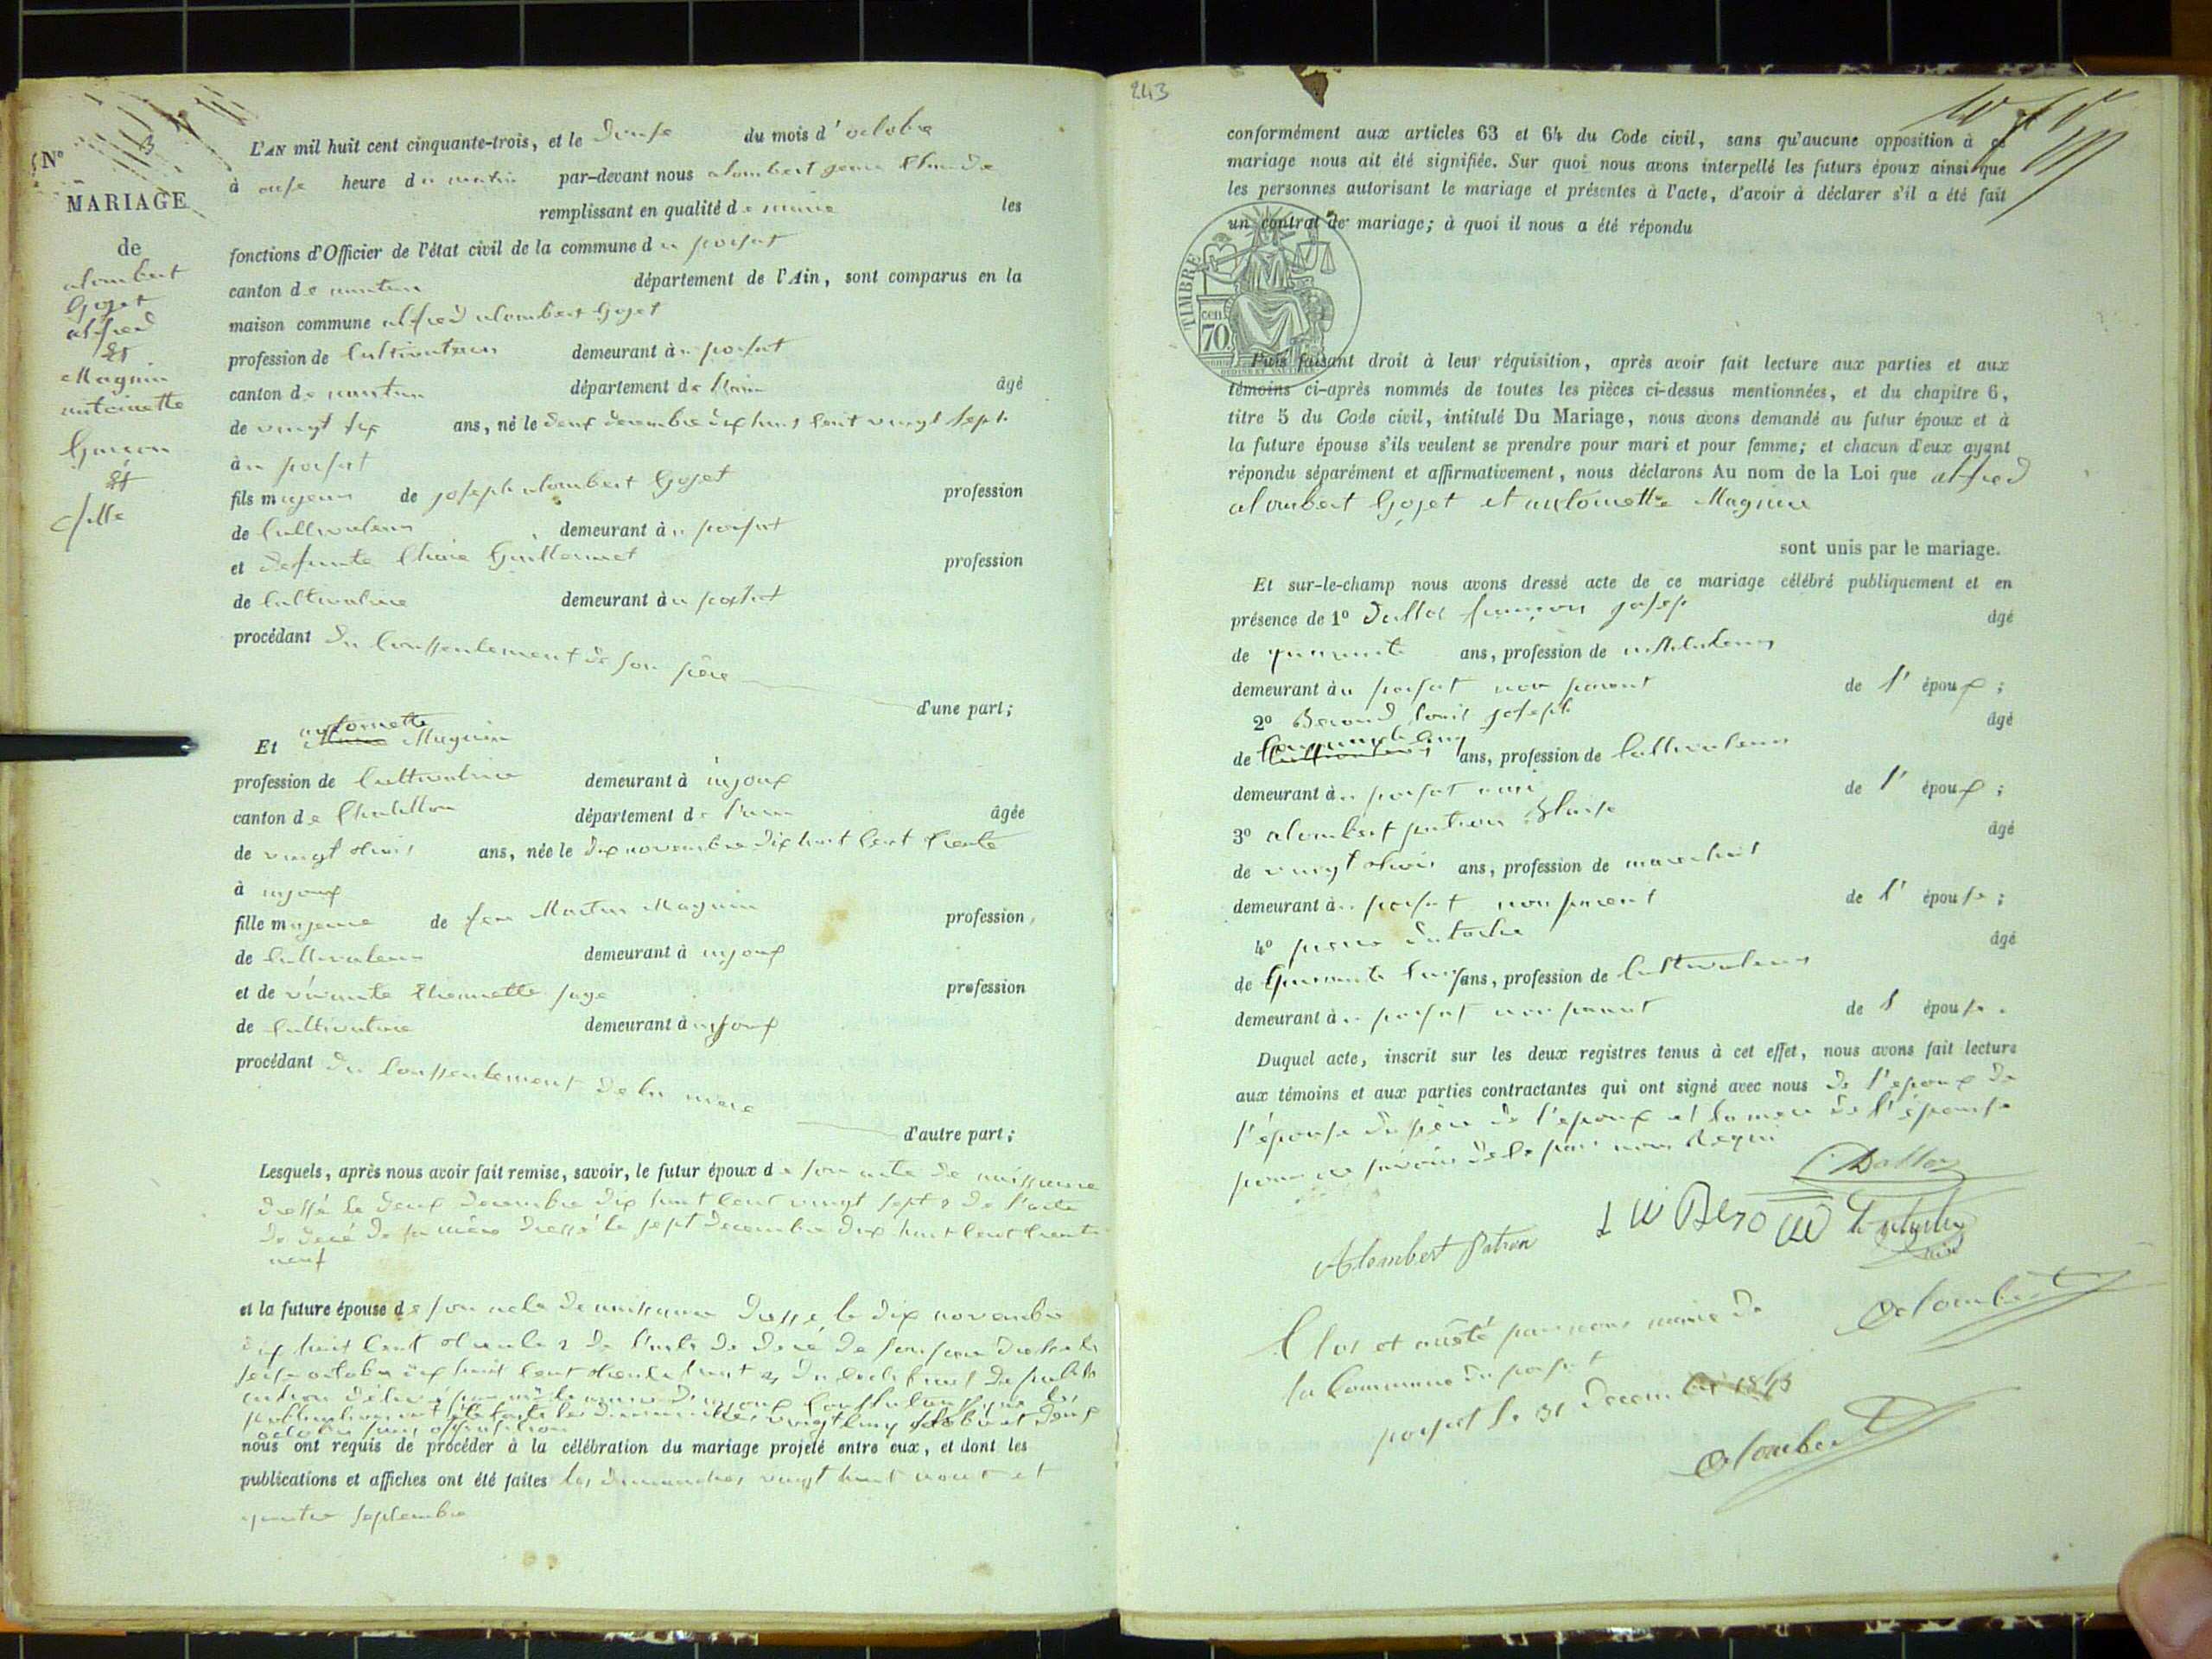 N° 3
MARIAGE
de
alombert
Gojet
alfred
Et
Magnin
antoinette
Garçon
Et
fille
L'AN mil huit cent cinquante-trois, et le douse du mois d'octobre
à onse heure du matin par-devant nous alombert
remplissant en qualité de maire les
fonctions d'Officier de l'état civil de la commune du poisat
canton de nantua département de l'Ain, sont comparus en la
maison commune alfred alombert Gojet
profession de Cultivateur demeurant à u poisat
canton de nantua département de l'ain âgé
de vingt six ans, né le deux decembre dix huit Cent vingt sept
à u poisat
fils majeur de joseph alombert Gojet profession
de Cultivateur demeurant à u poisat
et defunte Claire Guillermet profession
de Cultivatrice demeurant à u poisat
procédant du Conssentement de son père
d'une part;
Et antoinette Magnin
profession de Cultivatrice demeurant à injoux
canton de Chatillon département de l'ain âgée
de vingt trois ans, née le dix novembre dix huit Cent trente
à injoux
fille majeure de feu Martin Magnin profession
de Cultivateur demeurant à injoux
et de vivante Etiennette sage profession
de Cultivatrice demeurant à injoux
procédant du Conssentement de la mère
d'autre part;
Lesquels, après nous avoir fait remise, savoir, le futur époux de son acte de naissance
dressé le deux decembre dix huit Cent vingt sept & de l'acte
de decé de sa mère dressé le sept decembre dix huit Cent trente
neuf
et la future épouse de son acte de naissance dressé le dix novembre
dix huit Cent trente & de l'acte de decé de son père dressé le
seise octobre dix huit Cent trente huit & du certificat de publi
cation délivré par le maire d'injoux que les
publications ont été faites les dimanches vingt cinq et deux
octobre sans opposition
nous ont requis de procéder à la célébration du mariage projeté entre eux, et dont les
publications et affiches ont été faites les dimanches vingt huit aout et
quatre septembre
243
conformément aux articles 63 et 64 du Code civil, sans qu'aucune opposition à ce
mariage nous ait été signifiée. Sur quoi nous avons interpellé les futurs époux ainsi que
les personnes autorisant le mariage et présentes à l'acte, d'avoir à déclarer s'il a été fait
un contrat de mariage; à quoi il nous a été répondu
TIMBRE
cen
70.
Puis faisant droit à leur réquisition, après avoir fait lecture aux parties et aux
témoins ci-après nommés de toutes les pièces ci-dessus mentionnées, et du chapitre 6,
titre 5 du Code civil, intitulé Du Mariage, nous avons demandé au futur époux et à
la future épouse s'ils veulent se prendre pour mari et pour femme; et chacun d'eux ayant
répondu séparément et affirmativement, nous déclarons Au nom de la Loi que alfred
alombert Gojet et antoinette Magnin
sont unis par le mariage.
Et sur-le-champ nous avons dressé acte de ce mariage célébré publiquement et en
présence de 1° françois josep âgé
de quarante ans, profession de instituteur
demeurant à u poisat non parent de l'époux;
2° Beroud louis joseph âgé
de ans, profession de Cultivateur
demeurant à u poisat ami de l'époux;
3° alombert patron Blaise âgé
de vingt trois ans, profession de marechal
demeurant à u poisat non parent de l'épouse;
4° pierre dutartre âgé
de Quarante ans, profession de Cultivateur
demeurant à u poisat non parent de l épouse.
Duquel acte, inscrit sur les deux registres tenus à cet effet, nous avons fait lecture
aux témoins et aux parties contractantes qui ont signé avec nous de l'epoux de
l'épouse du père de l'époux et la mère de l'épouse
pour ne savoir de par nous Requi
Alombert Patron
Alombert
Clos et arrêté par nous maire de
la Commune du poisat
poisat le 31 decembre 1853
Alombert